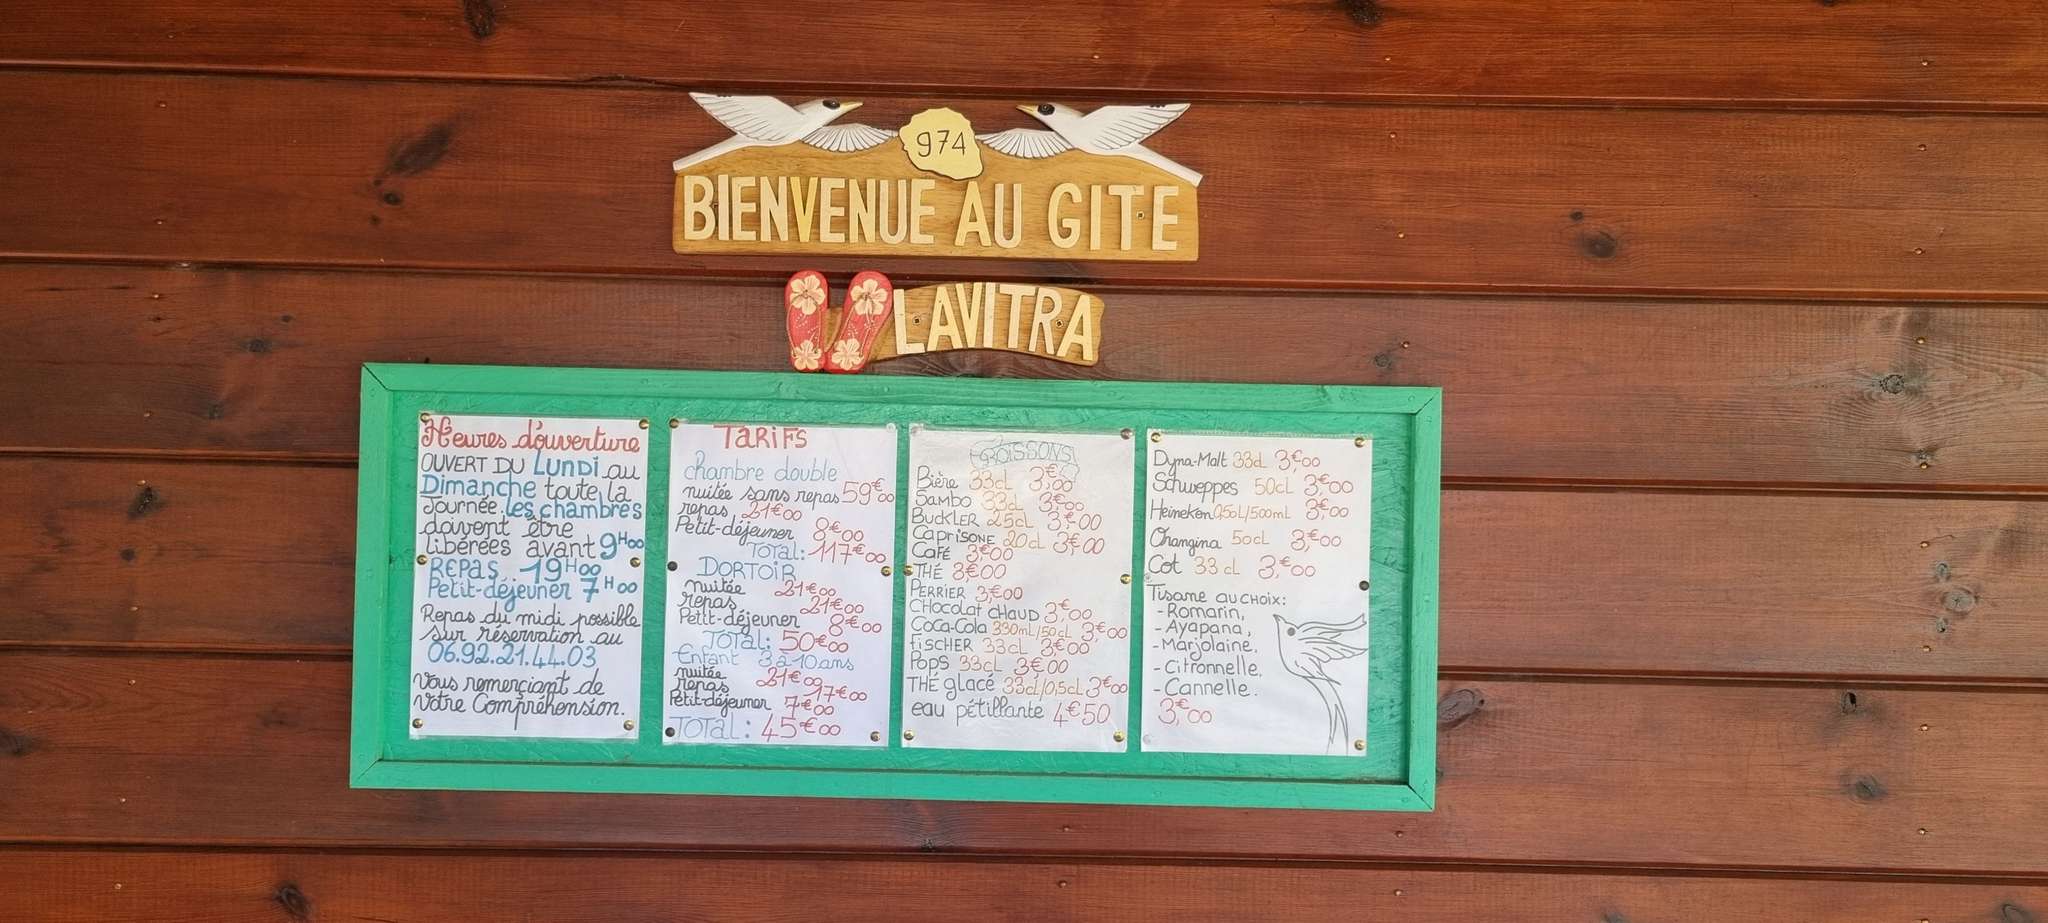 974
BIENVENUE AU GITE
LAVITRA
Heures d'ouverture
OUVERT DU LUNDI au
Dimanche toute la
Journée. les chambres
doivent être
libérées avant 9H00
REPAS.. 19H00
Petit-déjeuner 7H00
Repas du midi possible
sur réservation au
06.92.21.44.03
Vous remerçiant de
Votre Compréhension.
TARiFS
chambre double
nuitée sans repas 59€00
repas 21€00
Petit-déjeuner 8€00
TOTAL: 117€00
DORTOIR
nuitée 21€00
repas 21€00
Petit-déjeuner 8€00
TOTAL: 50€00
Enfant 3 à 10 ans
nuitée 21€00
repas 17€00
Petit-déjeuner 7€00
TOTAL: 45€00
BOISSONS
Bière 33cl 3€00
Sambo 33cl 3€00
BUCKLER 25cL 3€00
CAPRISONE 20cL 3€00
CAFÉ 3€00
THÉ 3€00
PERRIER 3€00
CHOCOLAT CHAUD 3€00
COCA-COLA 330mL/50cL 3€00
FISCHER 33cL 3€00
POPS 33cL 3€00
THÉ glacé 33cl/0,5cL 3€00
eau pétillante 4€50
Dyna-Malt 33cL 3€00
Schweppes 50cL 3€00
Heineken 0,50L/500mL 3€00
Orangina 50cL 3€00
Cot 33 cL 3€00
TiSane AU CHOIX:
- Romarin,
- Ayapana,
- Marjolaine,
- Citronnelle,
- Cannelle.
3€00